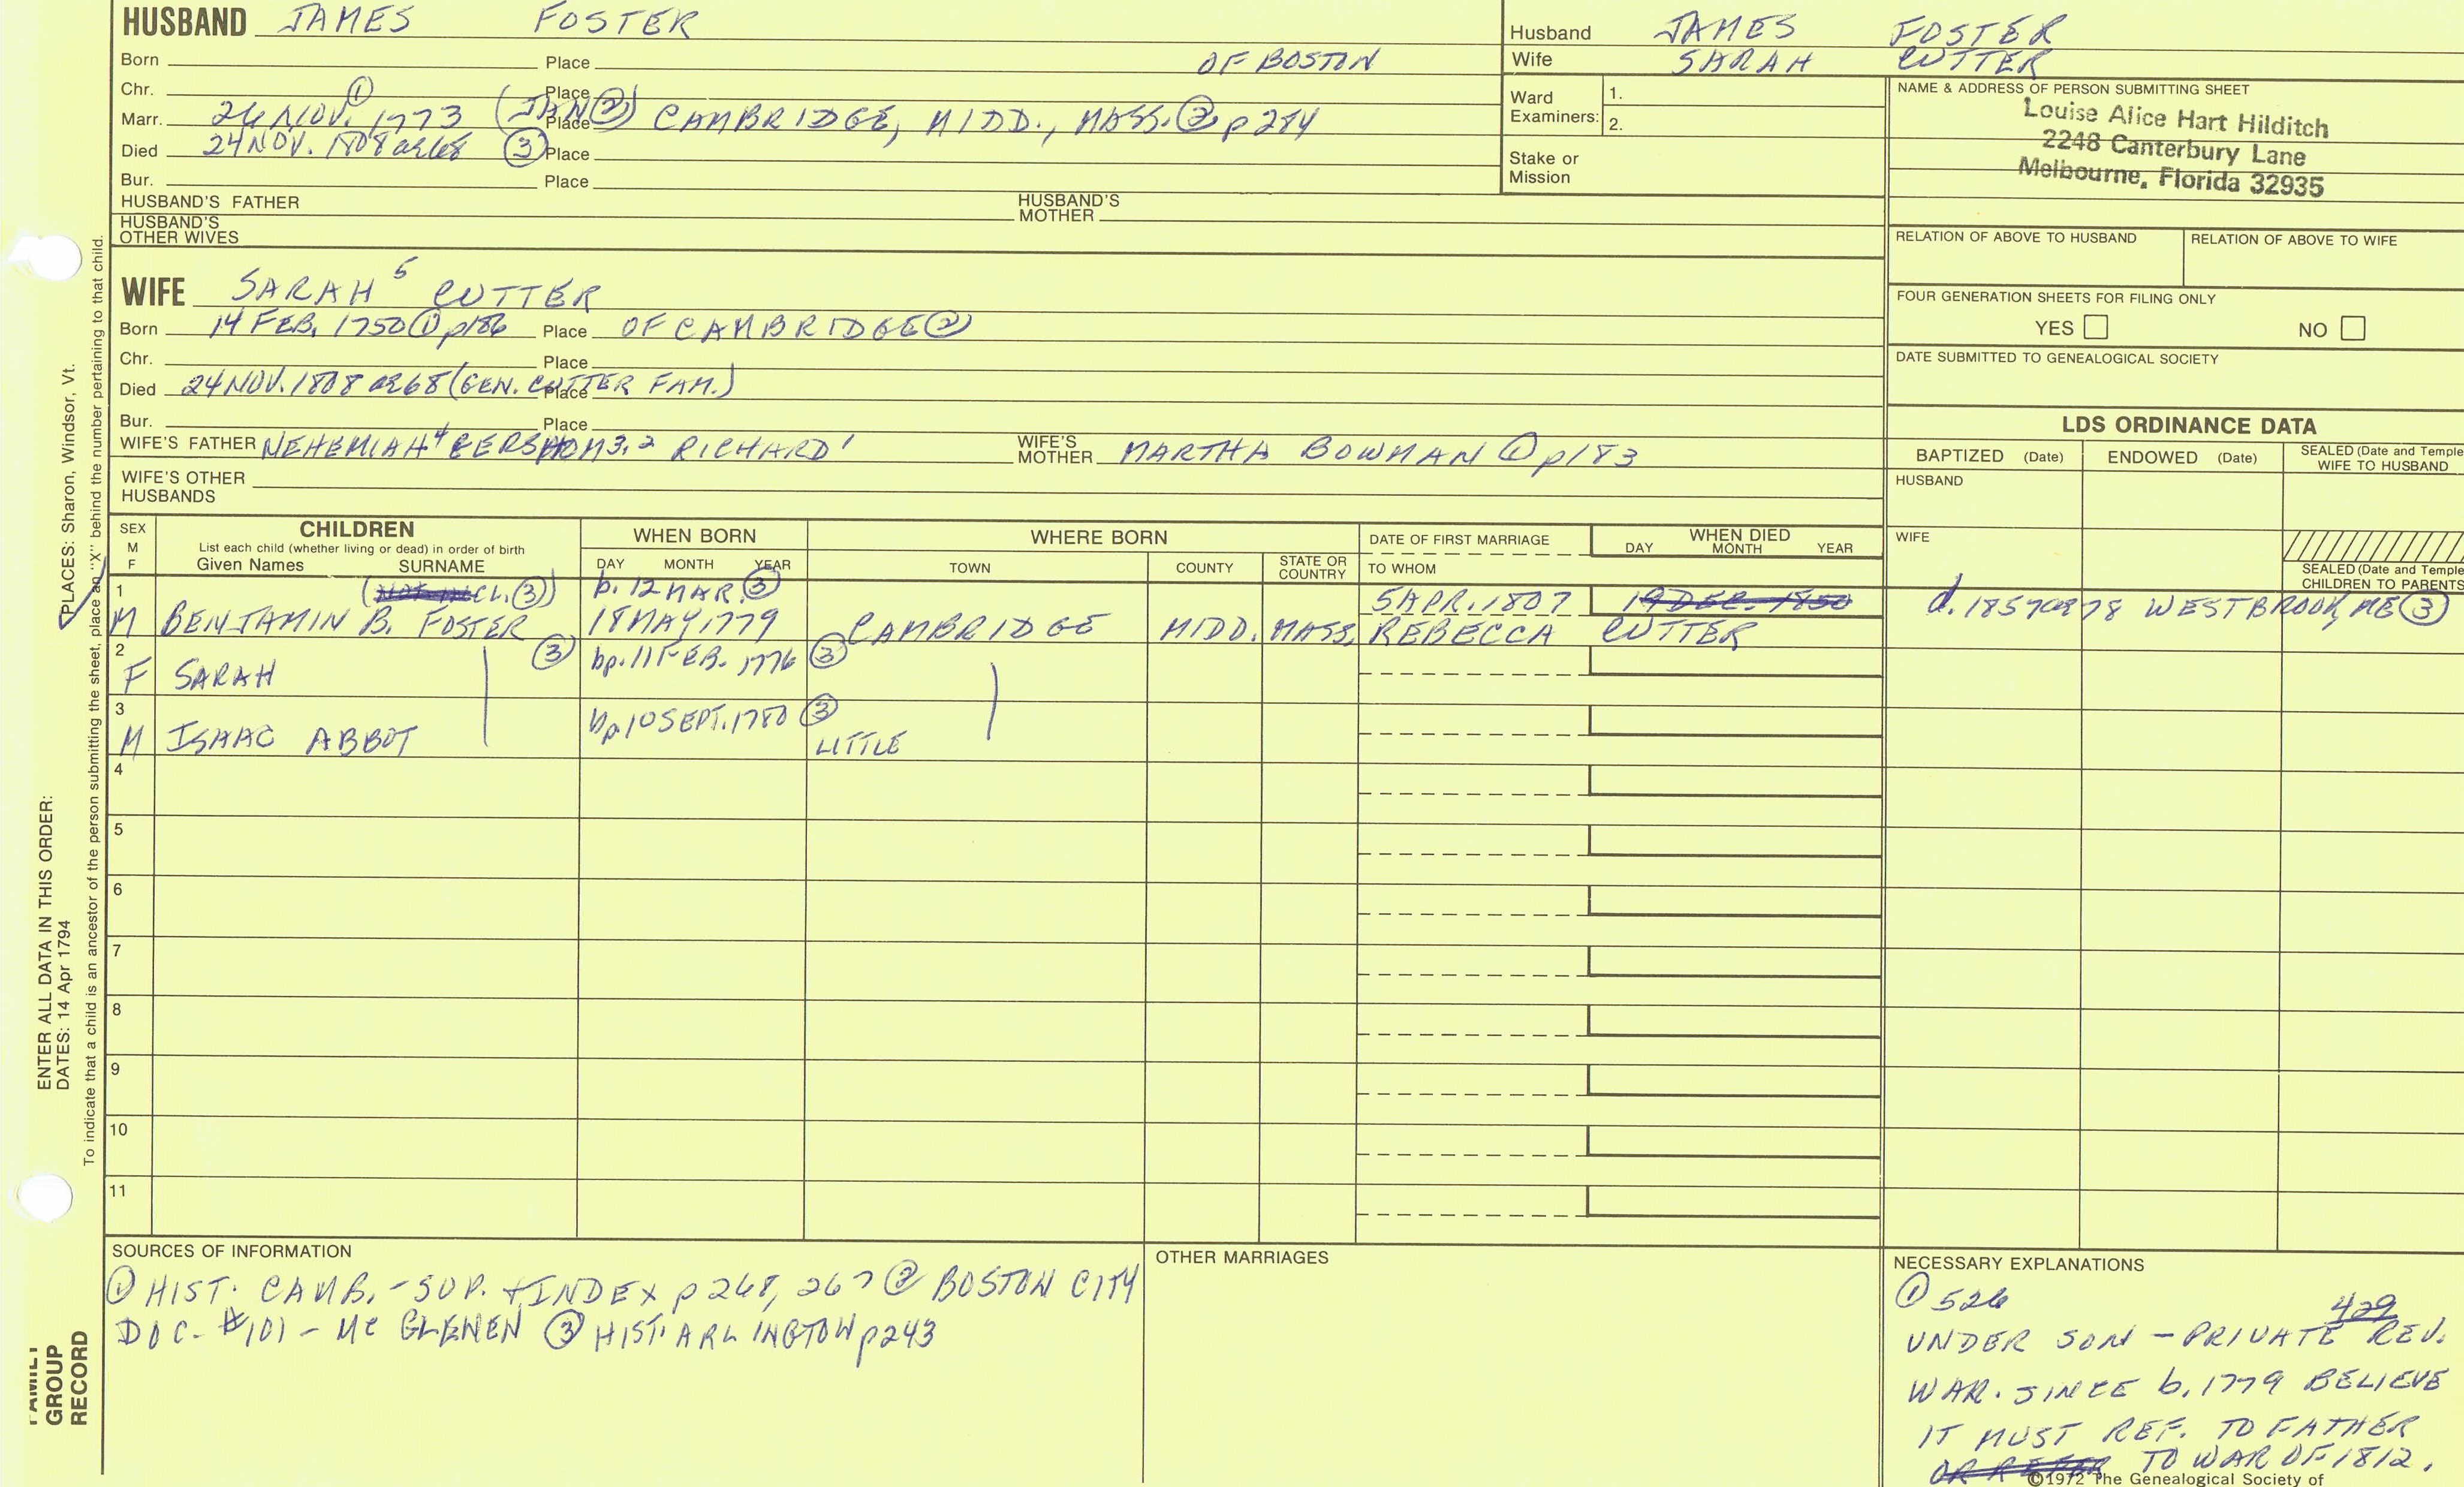 HUSBAND JAMES FOSTER
Born Place OF BOSTON
Chr. Place
Marr. 26 NOV. ① 1773 (JAN ②) Place CAMBRIDGE, MIDD., MASS. ② p 284
Died 24 NOV. 1808 ae 68 ③ Place
Bur. Place
HUSBAND'S FATHER HUSBAND'S MOTHER
HUSBAND'S OTHER WIVES
WIFE SARAH 5 CUTTER
Born 14 FEB. 1750 ① p186 Place OF CAMBRIDGE ②
Chr. Place
Died 24 NOV. 1808 ae 68 (GEN. CUTTER FAM.) Place
Bur. Place
WIFE'S FATHER NEHEMIAH 4 GERSHOM 3, 2 RICHARD 1 WIFE'S MOTHER MARTHA BOWMAN ① p183
WIFE'S OTHER HUSBANDS
Husband JAMES FOSTER
Wife SARAH CUTTER
Ward Examiners: 1.
2.
Stake or Mission
NAME & ADDRESS OF PERSON SUBMITTING SHEET
Louise Alice Hart Hilditch
2248 Canterbury Lane
Melbourne, Florida 32935
RELATION OF ABOVE TO HUSBAND RELATION OF ABOVE TO WIFE
FOUR GENERATION SHEETS FOR FILING ONLY
YES NO
DATE SUBMITTED TO GENEALOGICAL SOCIETY
LDS ORDINANCE DATA
BAPTIZED (Date) ENDOWED (Date) SEALED (Date and Temple WIFE TO HUSBAND
HUSBAND
WIFE
SEALED (Date and Temple
CHILDREN TO PARENTS
SEX
M
F
CHILDREN
List each child (whether living or dead) in order of birth
Given Names SURNAME
WHEN BORN
DAY MONTH YEAR
WHERE BORN
TOWN COUNTY STATE OR COUNTRY
DATE OF FIRST MARRIAGE
TO WHOM
WHEN DIED
DAY MONTH YEAR
1 CL. ③) b. 12 MAR. ③ 5 APR. 1807 19 DEC. 1850 d. 1857 ae 78 WESTBROOK, ME ③
M BENJAMIN B. FOSTER 18 MAY 1779 CAMBRIDGE MIDD. MASS. REBECCA CUTTER
2 ③ bp. 11 FEB. 1776 ③
F SARAH
3 bp. 10 SEPT. 1780 ③
M ISAAC ABBOT LITTLE
4
5
6
7
8
9
10
11
SOURCES OF INFORMATION
① HIST. CAMB. - SUP. + INDEX p 268, 267 ② BOSTON CITY
DOC. #101 - Mc GLENEN ③ HIST. ARLINGTON p243
OTHER MARRIAGES
NECESSARY EXPLANATIONS
① 526 429
UNDER SON - PRIVATE REV.
WAR. SINCE b. 1779 BELIEVE
IT MUST REF. TO FATHER
OR REFER TO WAR OF 1812.
©1972 The Genealogical Society of
PLACES: Sharon, Windsor, Vt.
To indicate that a child is an ancestor of the person submitting the sheet, place an "X" behind the number pertaining to that child.
ENTER ALL DATA IN THIS ORDER:
DATES: 14 Apr 1794
FAMILY
GROUP
RECORD